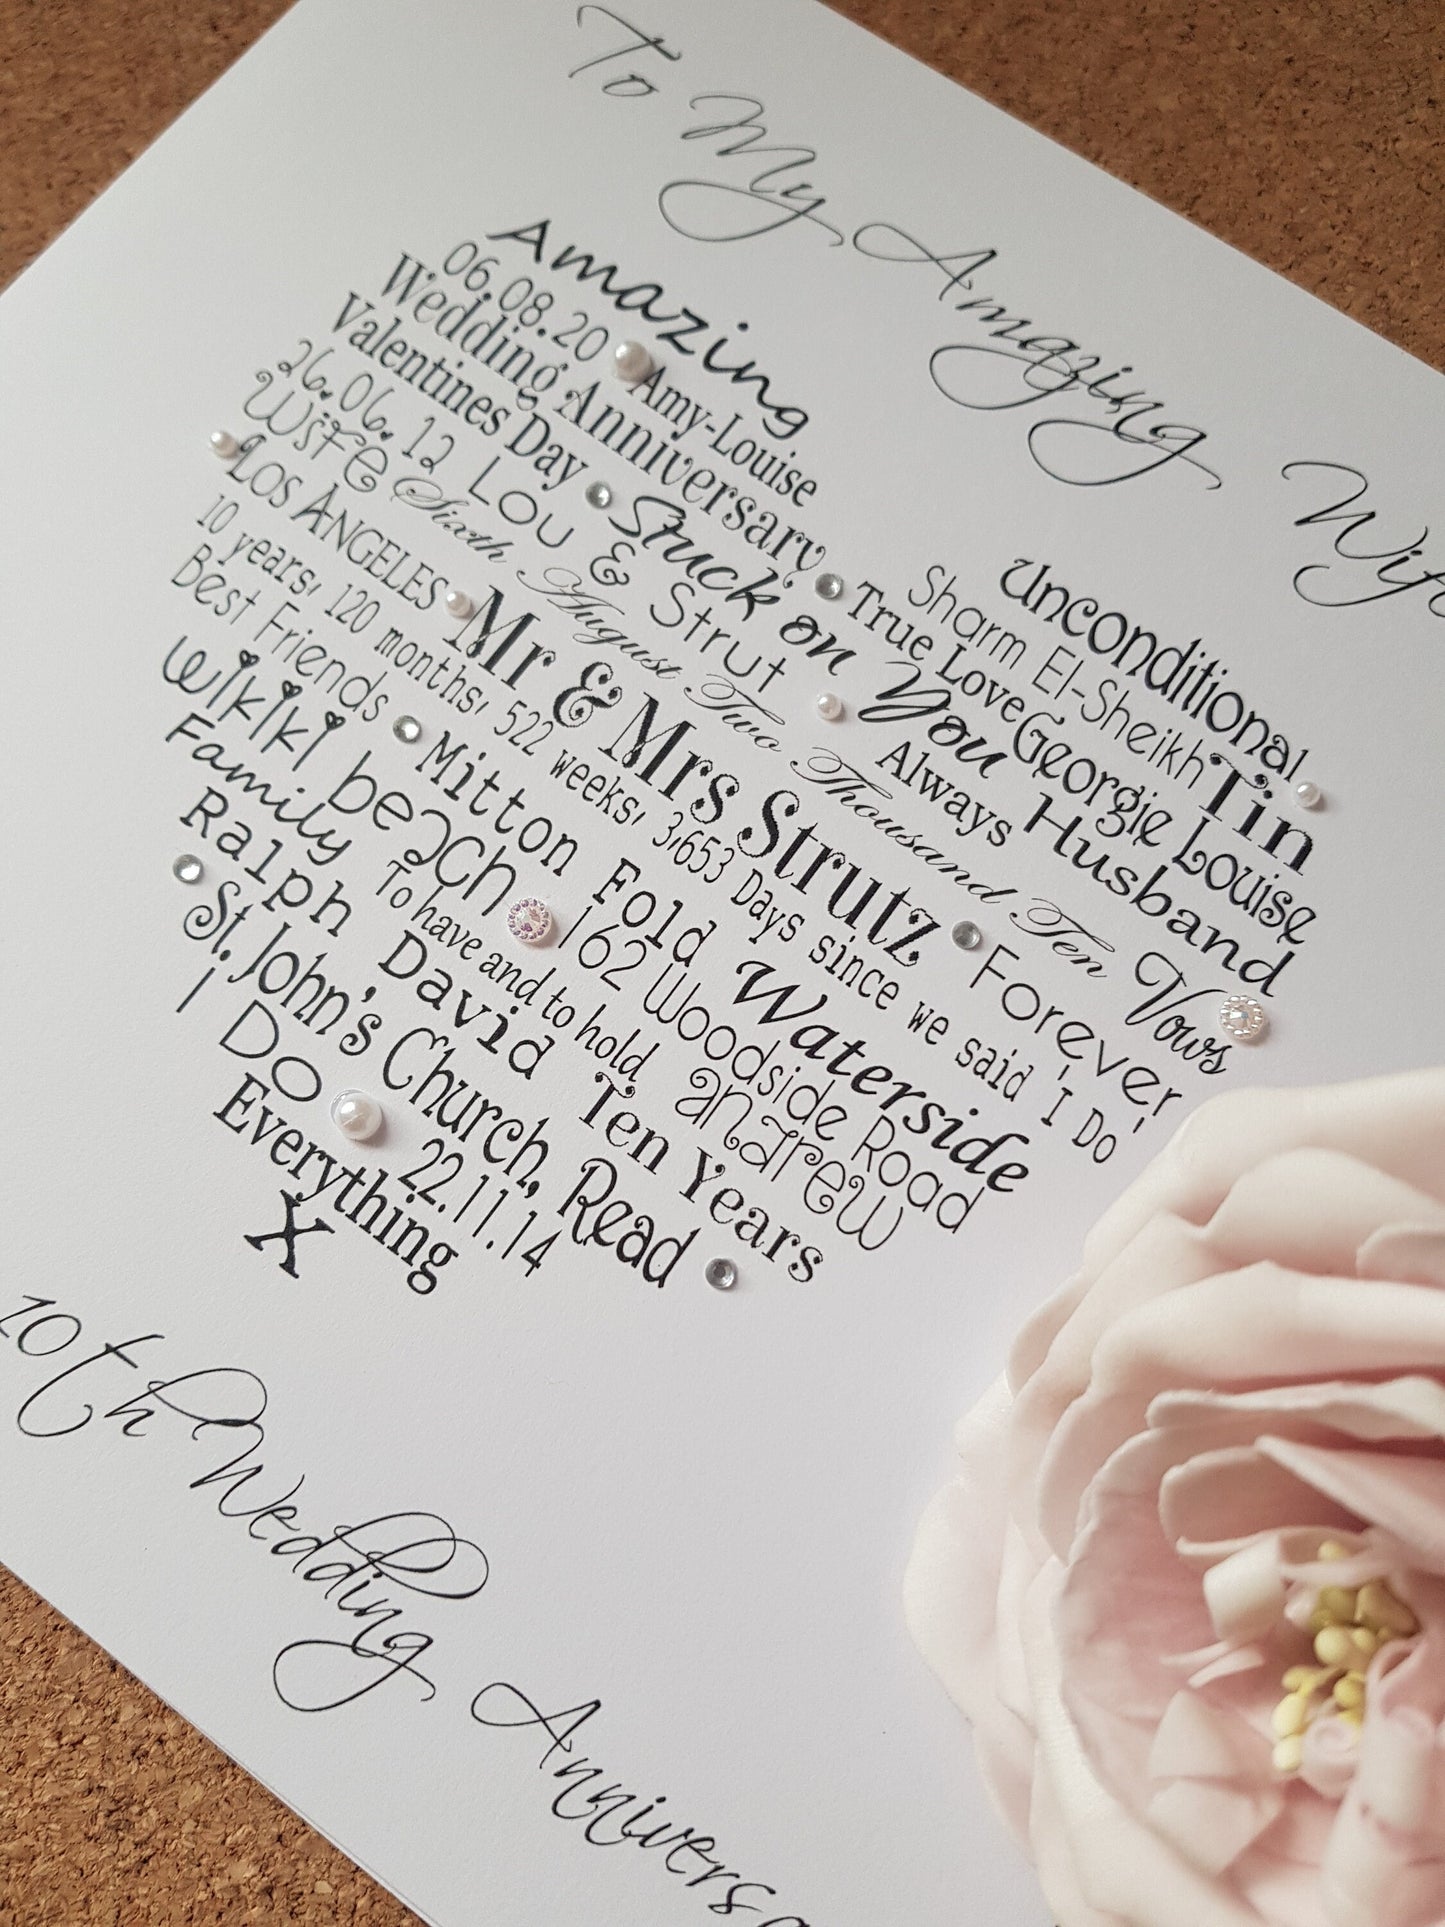 To My Amazing Wife
Amazing Unconditional
06.08.20 Amy-Louise Sharm El-Sheikh Tin
Wedding Anniversary True Love Georgie Louise
Valentines Day Stuck on You Husband
26.06.12 Lou & Strut Always
Wife Sixth August Two Thousand Ten Vows
Los Angeles Mr & Mrs Strutz Forever
10 years, 120 months, 522 weeks, 3,653 Days since we said 'I Do'
Best Friends Mitton Fold Waterside
Wikiki beach 162 Woodside Road
Family To have and to hold andrew
Ralph David Ten Years
St. John's Church, Read
I Do 22.11.14
Everything
X
10th Wedding Anniversa